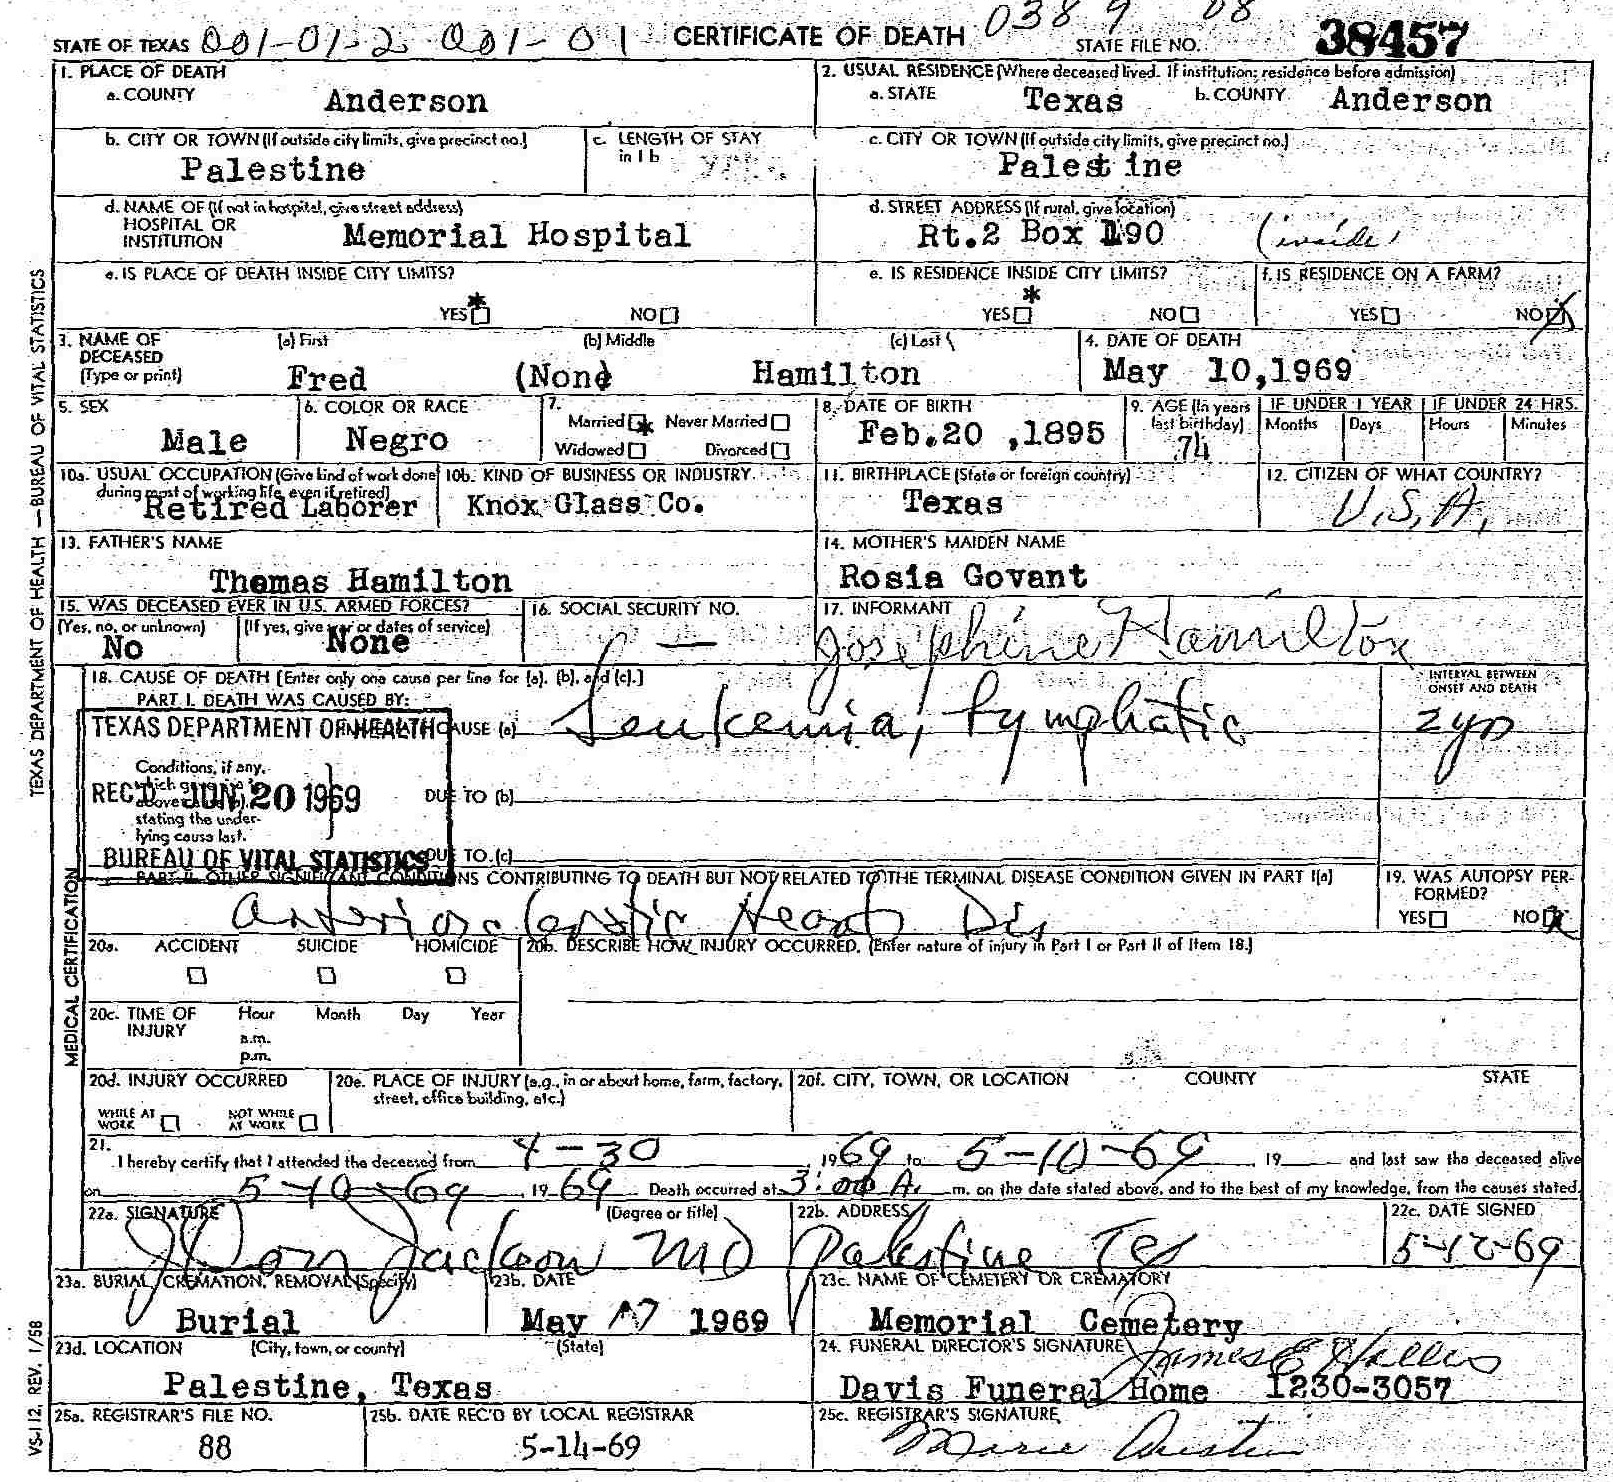 STATE OF TEXAS 001-01-2 001-01 CERTIFICATE OF DEATH STATE FILE NO. 38457
1. PLACE OF DEATH
a. COUNTY Anderson
2. USUAL RESIDENCE (Where deceased lived. If institution: residence before admission)
a. STATE Texas b. COUNTY Anderson
b. CITY OR TOWN (If outside city limits, give precinct no.) Palestine
c. LENGTH OF STAY in 1 b
c. CITY OR TOWN (If outside city limits, give precinct no.) Palestine
d. NAME OF (If not in hospital, give street address) HOSPITAL OR INSTITUTION Memorial Hospital
d. STREET ADDRESS (If rural, give location) Rt.2 Box 190 (inside)
e. IS PLACE OF DEATH INSIDE CITY LIMITS?
YES * NO
e. IS RESIDENCE INSIDE CITY LIMITS?
YES * NO
f. IS RESIDENCE ON A FARM?
YES NO
3. NAME OF DECEASED (Type or print)
(a) First Fred
(b) Middle (None)
(c) Last Hamilton
4. DATE OF DEATH May 10,1969
5. SEX Male
6. COLOR OR RACE Negro
7. Married Never Married
Widowed Divorced
8. DATE OF BIRTH Feb.20 ,1895
9. AGE (In years last birthday) 74
IF UNDER 1 YEAR Months Days
IF UNDER 24 HRS. Hours Minutes
10a. USUAL OCCUPATION (Give kind of work done during most of working life, even if retired) Retired Laborer
10b. KIND OF BUSINESS OR INDUSTRY Knox Glass Co.
11. BIRTHPLACE (State or foreign country) Texas
12. CITIZEN OF WHAT COUNTRY? U.S.A.
13. FATHER'S NAME Thomas Hamilton
14. MOTHER'S MAIDEN NAME Rosia Govant
15. WAS DECEASED EVER IN U.S. ARMED FORCES?
(Yes, no, or unknown) No
(If yes, give war or dates of service) None
16. SOCIAL SECURITY NO. —
17. INFORMANT Josephine Hamilton
18. CAUSE OF DEATH [Enter only one cause per line for (a), (b), and (c).]
PART I. DEATH WAS CAUSED BY:
CAUSE (a) Leukemia, Lymphatic
INTERVAL BETWEEN ONSET AND DEATH
2 yrs
TEXAS DEPARTMENT OF HEALTH
REC'D JUN 20 1969
BUREAU OF VITAL STATISTICS
Conditions, if any, which above stating the underlying cause last.
DUE TO (b)
DUE TO (c)
PART II. OTHER SIGNIFICANT CONDITIONS CONTRIBUTING TO DEATH BUT NOT RELATED TO THE TERMINAL DISEASE CONDITION GIVEN IN PART I(a)
Arteriosclerotic Heart Dis
19. WAS AUTOPSY PERFORMED?
YES NO
20a. ACCIDENT SUICIDE HOMICIDE
20b. DESCRIBE HOW INJURY OCCURRED. (Enter nature of injury in Part I or Part II of Item 18.)
20c. TIME OF INJURY Hour Month Day Year
a.m.
p.m.
20d. INJURY OCCURRED
WHILE AT WORK NOT WHILE AT WORK
20e. PLACE OF INJURY (e.g., in or about home, farm, factory, street, office building, etc.)
20f. CITY, TOWN, OR LOCATION COUNTY STATE
21. I hereby certify that I attended the deceased from 4-30 1969 to 5-10-69 , 19 and last saw the deceased alive
on 5-10-69 , 1969 Death occurred at 3:00 A. m. on the date stated above, and to the best of my knowledge, from the causes stated.
22a. SIGNATURE (Degree or title) J Don Jackson MD
22b. ADDRESS Palestine Tex
22c. DATE SIGNED 5-12-69
23a. BURIAL, CREMATION, REMOVAL (Specify) Burial
23b. DATE May 17 1969
23c. NAME OF CEMETERY OR CREMATORY Memorial Cemetery
23d. LOCATION (City, town, or county) (State) Palestine, Texas
24. FUNERAL DIRECTOR'S SIGNATURE James E Hollis
Davis Funeral Home 1230-3057
25a. REGISTRAR'S FILE NO. 88
25b. DATE REC'D BY LOCAL REGISTRAR 5-14-69
25c. REGISTRAR'S SIGNATURE Marie Austin
TEXAS DEPARTMENT OF HEALTH — BUREAU OF VITAL STATISTICS
MEDICAL CERTIFICATION
VS-112, REV. 1/58